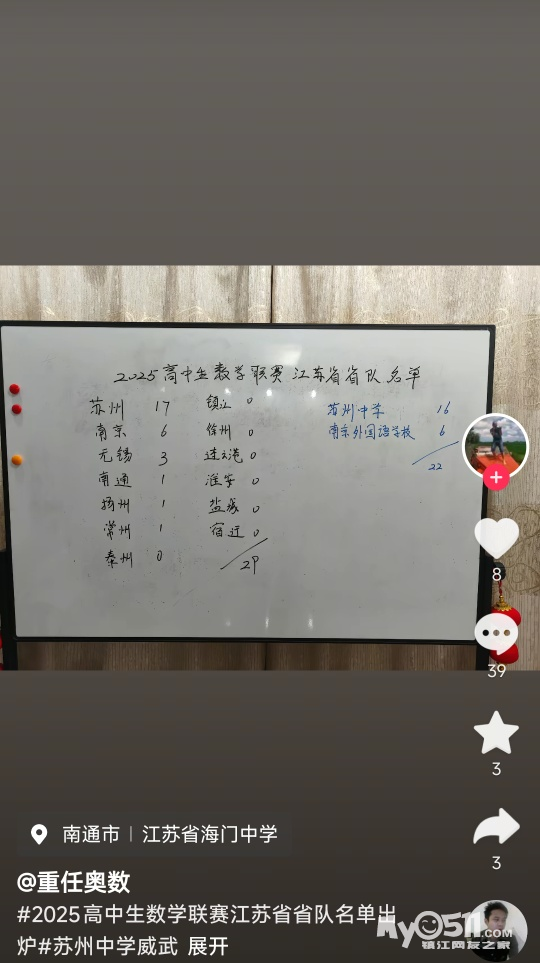 2025高中生数学联赛江苏省省队名单
苏州 17
南京 6
无锡 3
南通 1
扬州 1
常州 1
泰州 0
镇江 0
徐州 0
连云港 0
淮安 0
盐城 0
宿迁 0
29
苏州中学 16
南京外国语学校 6
22
8
39
3
3
南通市 | 江苏省海门中学
@重任奥数
#2025高中生数学联赛江苏省省队名单出
炉#苏州中学威武 展开
My0511.com
镇江网友之家